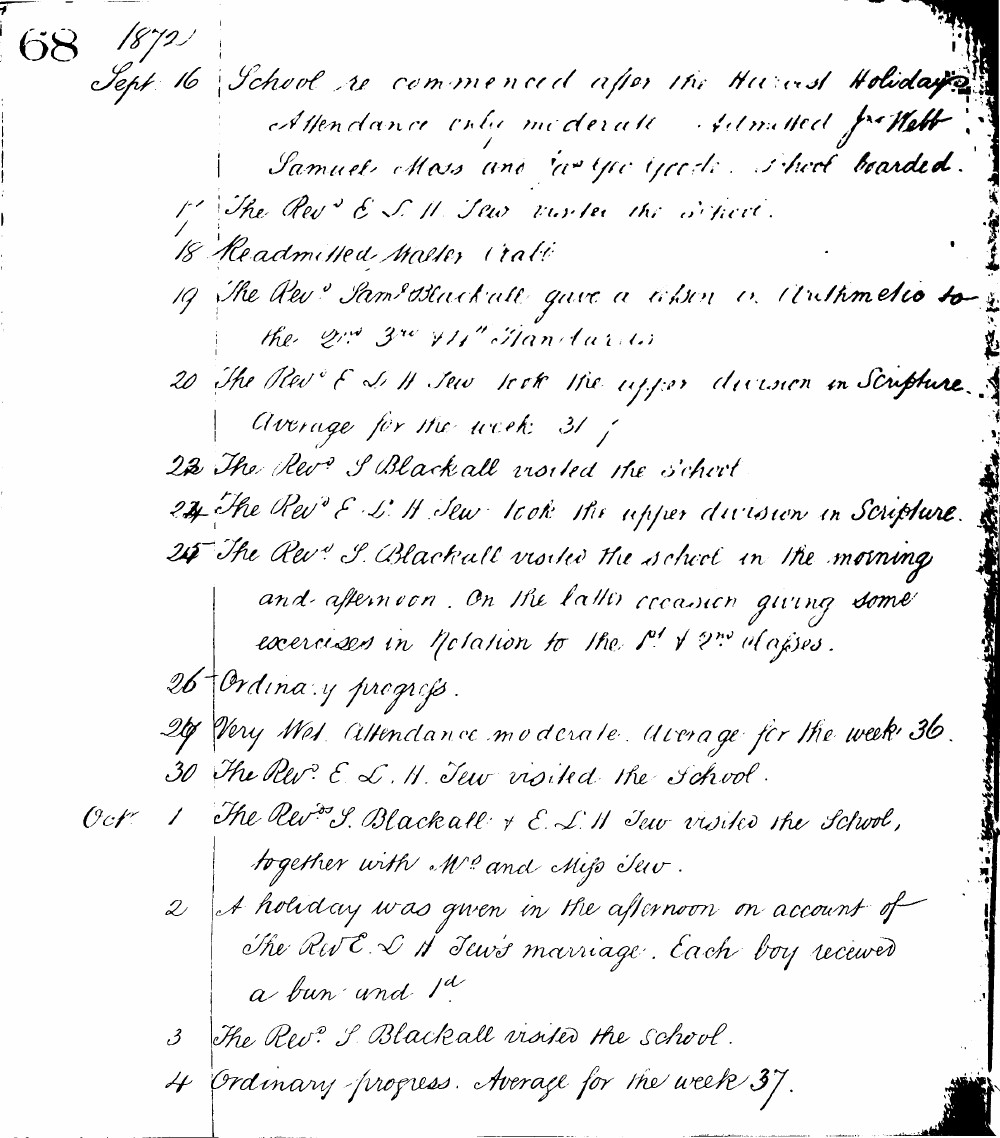 68 1872
Sept 16 School re commenced after the Harvest Holidays
Attendance only moderate. Admitted Jno Webb
Samuel Moss and School boarded.
17 The Revd E L H Tew visited the School.
18 Readmitted Walter Crabb
19 The Revd Saml Blackall gave a lesson in Arithmetic to
the 2nd 3rd & 4th Standards
20 The Revd E L H Tew took the upper division in Scripture.
Average for the week 31
23 The Revd S Blackall visited the School
24 The Revd E. L. H. Tew took the upper division in Scripture.
25 The Revd S. Blackall visited the school in the morning
and afternoon. On the latter occasion giving some
exercises in Notation to the 1st & 2nd classes.
26 Ordinary progress.
27 Very Wet. Attendance moderate. Average for the week 36.
30 The Revd. E. L. H. Tew visited the School.
Octr. 1 The Revds S. Blackall & E. L. H Tew visited the School,
together with Mrs and Miss Tew.
2 A holiday was given in the afternoon on account of
The Rev E. L H Tew's marriage. Each boy received
a bun and 1d.
3 The Revd S Blackall visited the School.
4 Ordinary progress. Average for the week 37.